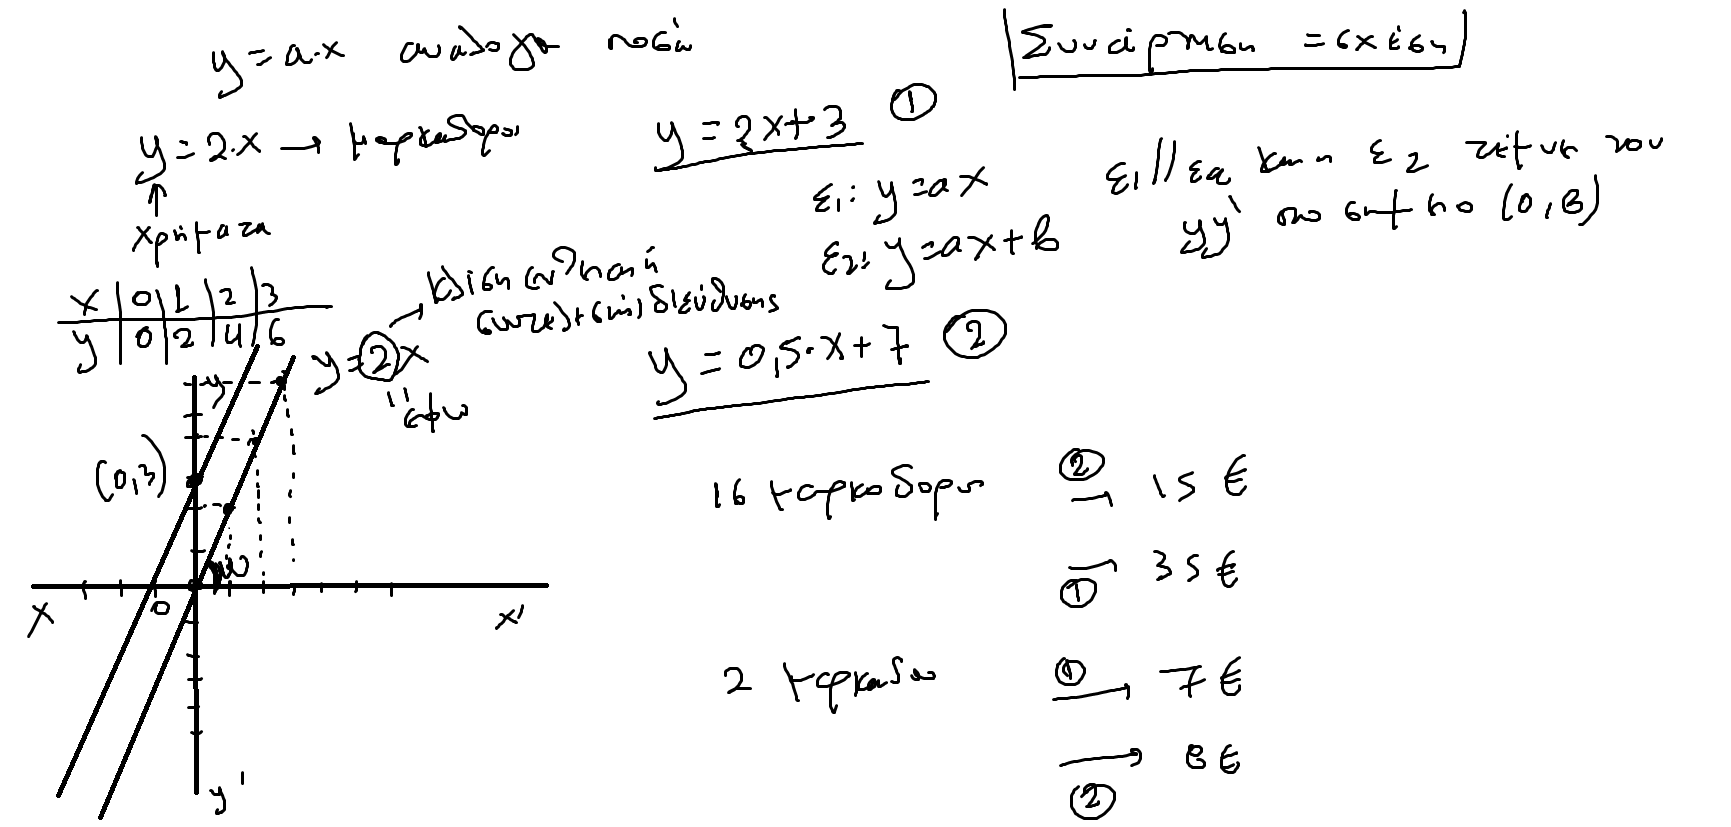 y = a·x ανάλογα ποσά
Συνάρτηση = σχέση
y = 2·x → μαρκαδόροι
y = 2x + 3 ①
χρήματα
ε₁: y = ax
ε₂: y = ax + β
ε₁ // ε₂ και η ε₂ τέμνει τον
yy' στο σημείο (0, β)
x 0 1 2 3
y 0 2 4 6
κλίση ευθείας ή
συντελεστής διεύθυνσης
y = 2x
"εφω
y = 0,5·x + 7 ②
y
(0,3)
ω
x 0 x'
y'
16 μαρκαδόροι ② → 15 €
① → 35 €
2 μαρκαδόροι ① → 7 €
② → 8 €